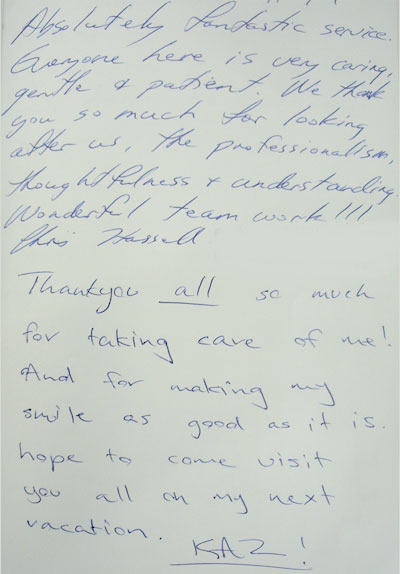 Absolutely fantastic service.
Everyone here is very caring,
gentle & patient. We thank
you so much for looking
after us, the professionalism,
thoughtfulness & understanding.
Wonderful team work!!!
Chris Hassell
Thankyou all so much
for taking care of me!
And for making my
smile as good as it is.
hope to come visit
you all on my next
vacation.
KAZ!